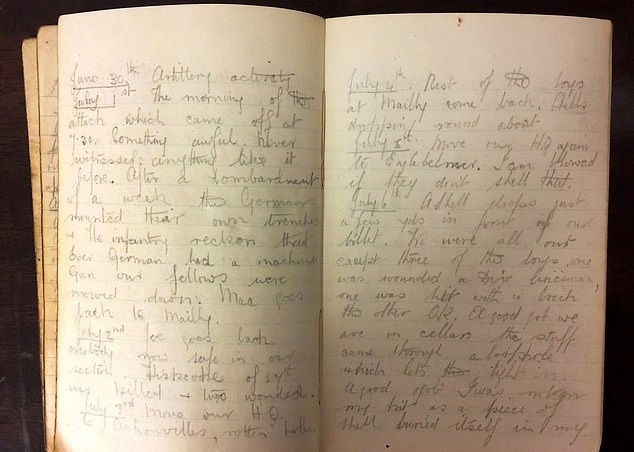 June 30th Artillery activity
July 1st The morning of the
attack which came off at
7.30. Something awful. Never
witnessed anything like it
before. After a bombardment
of a week the Germans
mounted their own trenches
& the infantry reckon that
every German had a machine
Gun our fellows were
mowed down. Mac goes
back to Mailly.
July 2nd Joe goes back.
everybody now safe in our
section.
was killed & two wounded.
July 3rd Move our H.Q.
to Auchonvilles, rotten hole.
July 4th. Rest of the boys
at Mailly come back. Shells
dropping round about
July 5th. Move our HQ again
to Englebelmer. I am blowed
if they don't shell that.
July 6th A shell drops just
a few yds in front of our
billet. We were all out
except three of the boys one
was wounded a Div linesman,
one was hit with a brick
the other OK. A good job we
are in cellars the stuff
came through a loophole
which lets the light in.
A good job I wasn't in
my bed as a piece of
shell buried itself in my